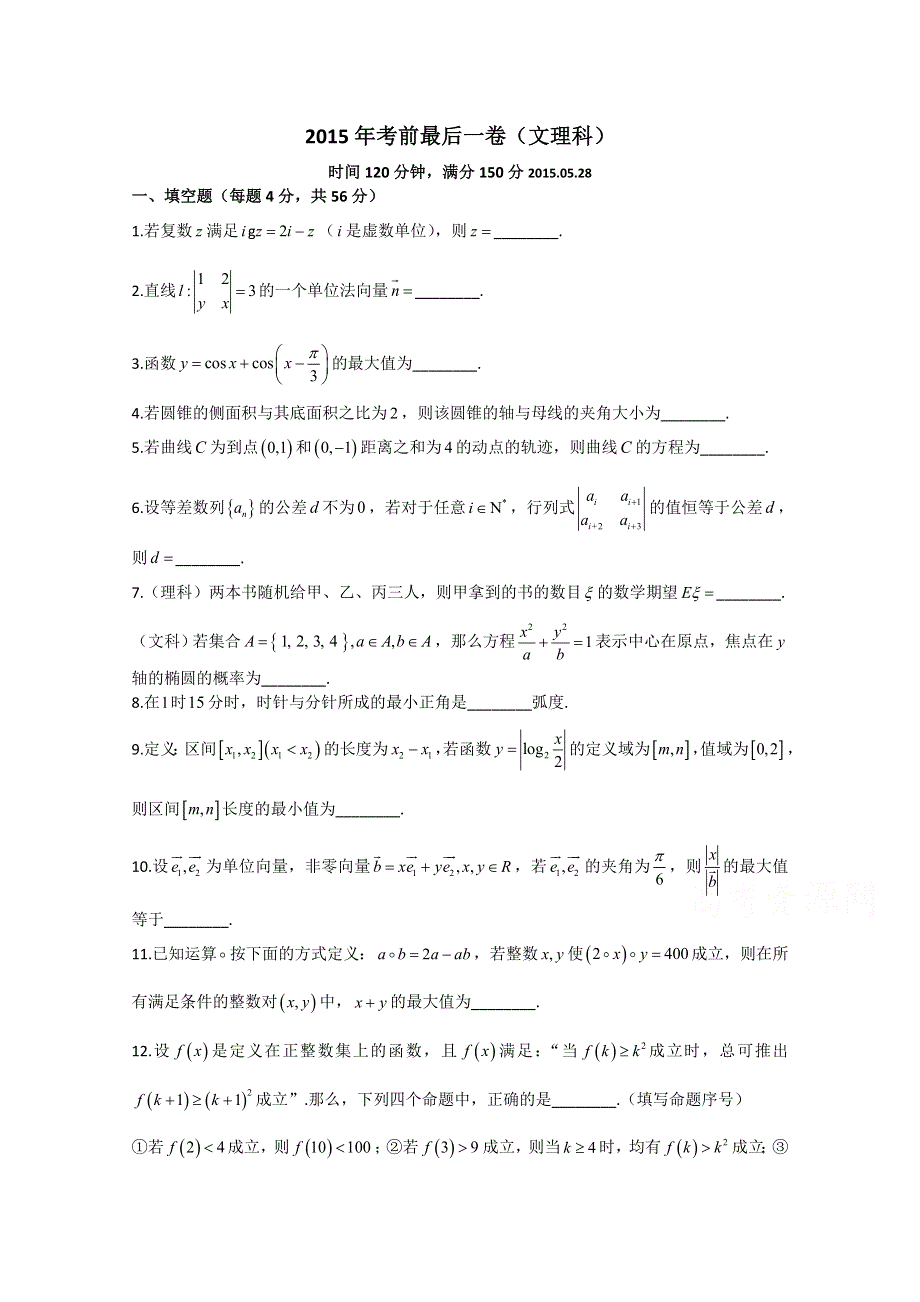 2015 年考前最后一卷（文理科）
时间 120 分钟，满分 150 分 2015.05.28
一、填空题（每题 4 分，共 56 分）
1.若复数 z 满足 igz = 2i − z（i 是虚数单位），则 z = ________.
2.直线 l : |1 2; y x| = 3 的一个单位法向量 n⃗ = ________.
3.函数 y = cos x + cos(x − π/3) 的最大值为________.
4.若圆锥的侧面积与其底面积之比为 2，则该圆锥的轴与母线的夹角大小为________.
5.若曲线 C 为到点 (0,1) 和 (0,−1) 距离之和为 4 的动点的轨迹，则曲线 C 的方程为________.
6.设等差数列 {aₙ} 的公差 d 不为 0，若对于任意 i ∈ N*，行列式 |a_i a_{i+1}; a_{i+2} a_{i+3}| 的值恒等于公差 d，
则 d = ________.
7.（理科）两本书随机给甲、乙、丙三人，则甲拿到的书的数目 ξ 的数学期望 Eξ = ________.
（文科）若集合 A = { 1, 2, 3, 4 }, a ∈ A, b ∈ A，那么方程 x²/a + y²/b = 1 表示中心在原点，焦点在 y
轴的椭圆的概率为________.
8.在 1 时 15 分时，时针与分针所成的最小正角是________弧度.
9.定义：区间 [x₁, x₂](x₁ < x₂) 的长度为 x₂ − x₁，若函数 y = |log₂ x/2| 的定义域为 [m,n]，值域为 [0,2]，
则区间 [m,n] 长度的最小值为________.
10.设 e₁⃗, e₂⃗ 为单位向量，非零向量 b⃗ = xe₁⃗ + ye₂⃗, x, y ∈ R，若 e₁⃗, e₂⃗ 的夹角为 π/6，则 |x|/|b⃗| 的最大值
等于________.
11.已知运算∘按下面的方式定义：a∘b = 2a − ab，若整数 x, y 使 (2∘x)∘y = 400 成立，则在所
有满足条件的整数对 (x, y) 中，x + y 的最大值为________.
12.设 f(x) 是定义在正整数集上的函数，且 f(x) 满足：“当 f(k) ≥ k² 成立时，总可推出
f(k+1) ≥ (k+1)² 成立”.那么，下列四个命题中，正确的是________.（填写命题序号）
①若 f(2) < 4 成立，则 f(10) < 100；②若 f(3) > 9 成立，则当 k ≥ 4 时，均有 f(k) > k² 成立；③
高考资源网